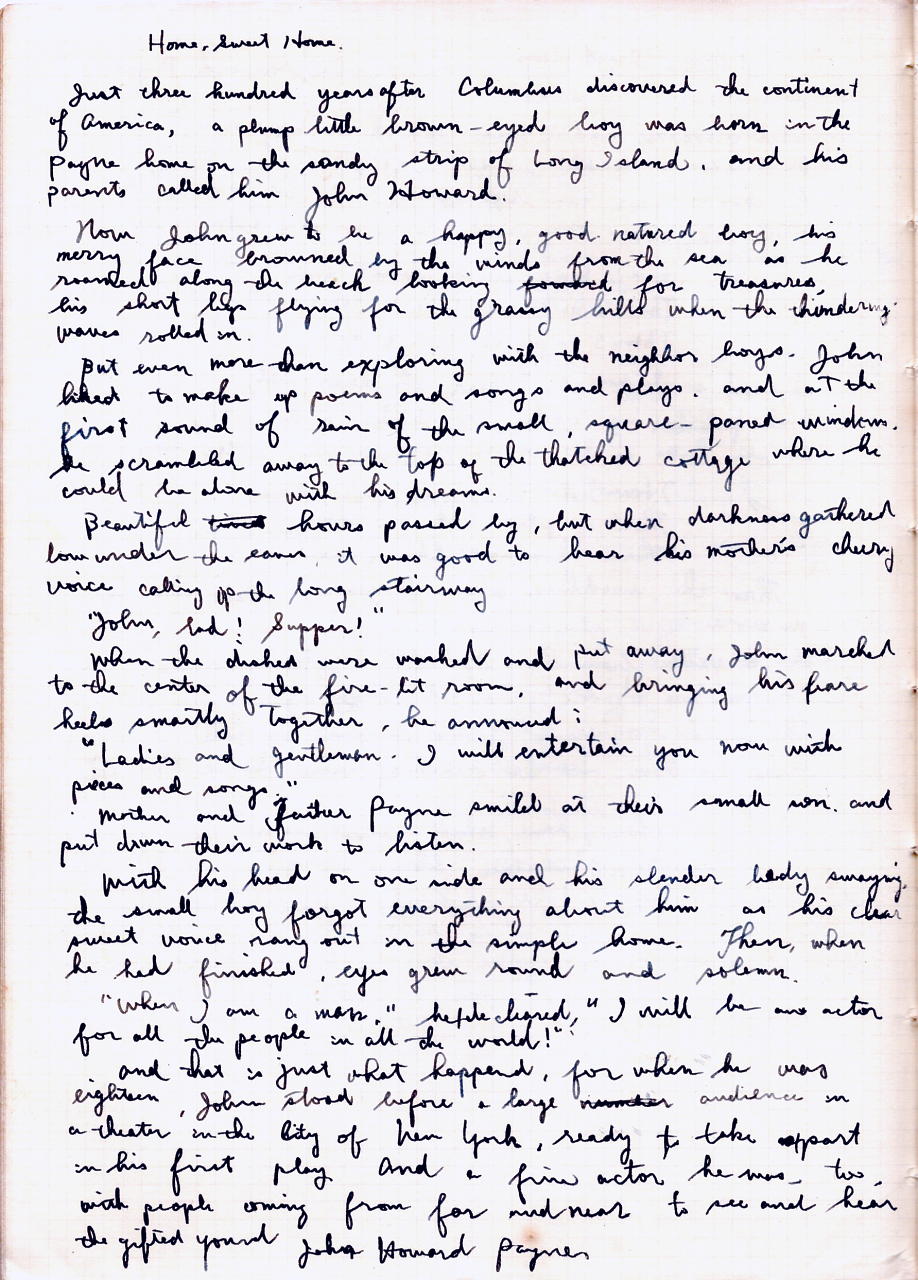 Home, Sweet Home.
Just three hundred years after Columbus discovered the continent
of America, a plump little brown-eyed boy was born in the
Payne home on the sandy strip of Long Island. and his
parents called him John Howard.
Now John grew to be a happy, good natured boy, his
merry face browned by the winds from the sea as he
roamed along the beach looking for treasures,
his short legs flying for the grassy hills when the thindering
waves rolled in.
But even more than exploring with the neighbor boys. John
liked to make up poems and songs and plays. and at the
first sound of rain of the small, square-paned windows.
he scrambled away to the top of the thatched cottage where he
could be alone with his dreams.
Beautiful hours passed by, but when darkness gathered
low under the eaves, it was good to hear his mother's cheery
voice calling up the long stairway
"John, lad! Supper!"
When the dished were washed and put away, John marched
to the center of the fire-lit room, and bringing his
heels smartly together, he announcd:
"Ladies and gentleman. I will entertain you now with
pieces and songs."
Mother and father Payne smild at their small son. and
put down their work to listen.
With his head on one side and his slender body swaying,
the small boy forgot everything about him as his clear
sweet voice rang out in the simple home. Then, when
he had finished, eyes grew round and solemn.
"When I am a man," he declared, "I will be an actor
for all the people in all the world!"
and that is just what happend, for when he was
eighteen, John stood before a large audience in
a theater in the City of New York, ready to take part
in his first play And a fine actor he was, too,
with people coming from far and near to see and hear
the gifted John Howard Payne.